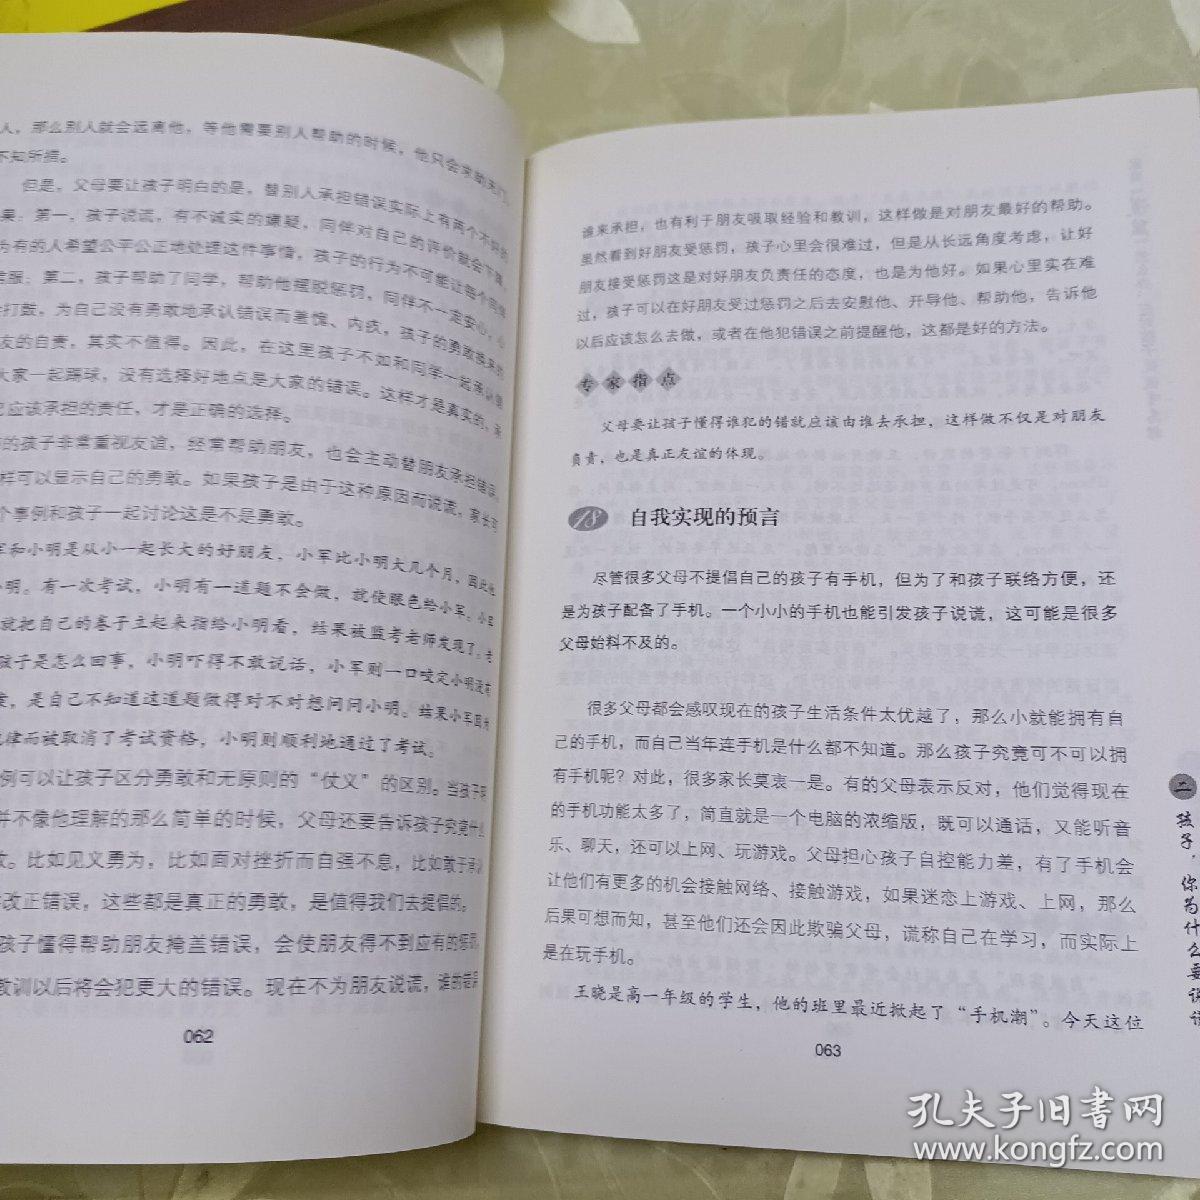 人，那么别人就会远离他，等他需要别人帮助的时候，他只会求助无门，
不知所措。
但是，父母要让孩子明白的是，替别人承担错误实际上有两个不好的
果：第一，孩子说谎，有不诚实的嫌疑，同伴对自己的评价就会下降，
为有的人希望公平公正地处理这件事情，孩子的行为不可能让每个同伴
服；第二，孩子帮助了同学，帮助他摆脱惩罚，同伴不一定安心，心
打鼓，为自己没有勇敢地承认错误而羞愧、内疚，孩子的勇敢换来的
友的自责，其实不值得。因此，在这里孩子不如和同学一起承认错
大家一起踢球，没有选择好地点是大家的错误。这样才是真实的，承
应该承担的责任，才是正确的选择。
的孩子非常重视友谊，经常帮助朋友，也会主动替朋友承担错误，
样可以显示自己的勇敢。如果孩子是由于这种原因而说谎，家长可
个事例和孩子一起讨论这是不是勇敢。
军和小明是从小一起长大的好朋友，小军比小明大几个月，因此他
小明。有一次考试，小明有一道题不会做，就使眼色给小军。小军
就把自己的卷子立起来指给小明看，结果被监考老师发现了。老
孩子是怎么回事，小明吓得不敢说话，小军则一口咬定小明没有
，是自己不知道这道题做得对不对想问问小明。结果小军因为
律而被取消了考试资格，小明则顺利地通过了考试。
例可以让孩子区分勇敢和无原则的“仗义”的区别。当孩子
并不像他理解的那么简单的时候，父母还要告诉孩子究竟什么
。比如见义勇为，比如面对挫折而自强不息，比如敢于承认
改正错误，这些都是真正的勇敢，是值得我们去提倡的。
孩子懂得帮助朋友掩盖错误，会使朋友得不到应有的惩罚，
教训以后将会犯更大的错误。现在不为朋友说谎，谁的错误
062
谁来承担，也有利于朋友吸取经验和教训，这样做是对朋友最好的帮助。
虽然看到好朋友受惩罚，孩子心里会很难过，但是从长远角度考虑，让好
朋友接受惩罚这是对好朋友负责任的态度，也是为他好。如果心里实在难
过，孩子可以在好朋友受过惩罚之后去安慰他、开导他、帮助他，告诉他
以后应该怎么去做，或者在他犯错误之前提醒他，这都是好的方法。
专家指点
父母要让孩子懂得谁犯的错就应该由谁去承担，这样做不仅是对朋友
负责，也是真正友谊的体现。
18 自我实现的预言
尽管很多父母不提倡自己的孩子有手机，但为了和孩子联络方便，还
是为孩子配备了手机。一个小小的手机也能引发孩子说谎，这可能是很多
父母始料不及的。
很多父母都会感叹现在的孩子生活条件太优越了，那么小就能拥有自
己的手机，而自己当年连手机是什么都不知道。那么孩子究竟可不可以拥
有手机呢？对此，很多家长莫衷一是。有的父母表示反对，他们觉得现在
的手机功能太多了，简直就是一个电脑的浓缩版，既可以通话，又能听音
乐、聊天，还可以上网、玩游戏。父母担心孩子自控能力差，有了手机会
让他们有更多的机会接触网络、接触游戏，如果迷恋上游戏、上网，那么
后果可想而知，甚至他们还会因此欺骗父母，谎称自己在学习，而实际上
是在玩手机。
王晓是高一年级的学生，他的班里最近掀起了“手机潮”。今天这位
063
二 孩子，你为什么要说谎
孔夫子旧书网
www.kongfz.com